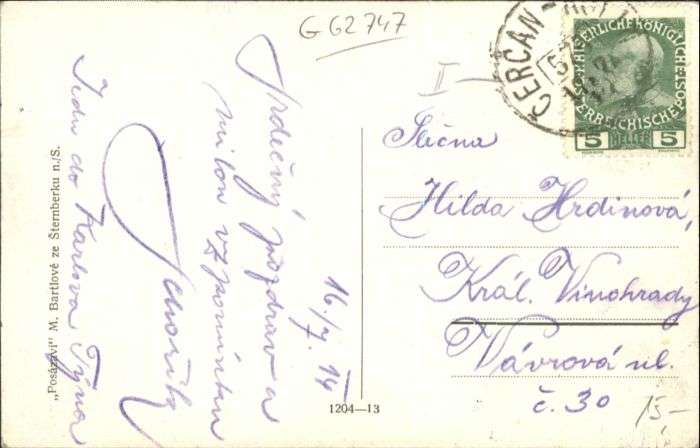 G 62747
ČERČAN
KAISERLICHE KÖNIGLICHE
ÖSTERREICHISCHE
5 HELLER 5
I
Slečna
Hilda Hrdinová,
Král. Vinohrady
Vávrová ul.
č. 30
15,-
16./7. 14
Srdečný pozdrav a
milou vzpomínku
Jedu do Karlova Týna
„Posázaví" M. Bartlové ze Šternberku n./S.
1204—13